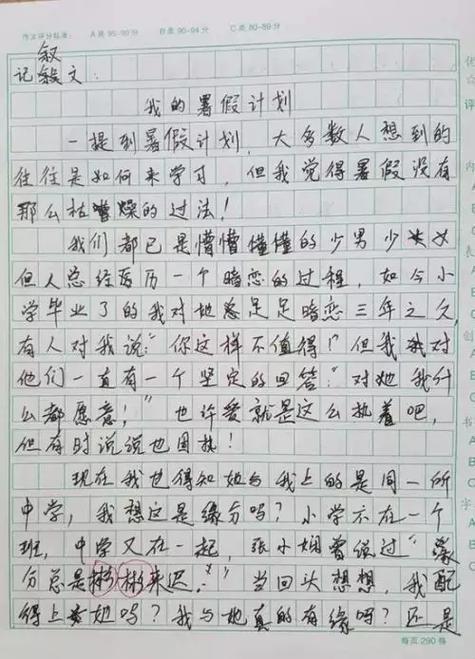 作文评分标准: A类 95-99分 B类 90-94分 C类 80-89分
叙
记叙文:
我的暑假计划
一提到暑假计划,大多数人想到的
往往是如何来学习,但我觉得暑假没有
那么枯燥的过法!
我们都已是懵懵懂懂的少男少女
但人总经历一个暗恋的过程,如今小
学毕业了的我对她足足暗恋三年之久,
有人对我说:"你这样不值得!"但我对
他们一直有一个坚定的回答:"对她我什
么都愿意!"也许爱就是这么执着吧,
但有时说说也固执!
现在我也得知她与我上的是同一所
中学,我想这是缘分吗?小学不在一个
班,中学又在一起,张小娴曾说过"缘
分总是彬彬来迟."当回头想想,我配
得上她吗?我与她真的有缘吗?还是
每页 290 格